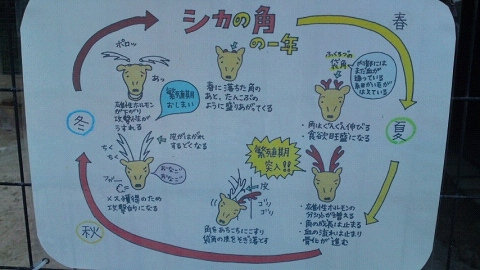 シカの角
の一年
春
ポロッ
あっ
雄性ホルモン
が下がり
攻撃性が
うすれる
繁殖期
おしまい
春に落ちた角の
あと、たんこぶの
ように盛りあがってくる
ふくろづの
袋角
内部には
まだ血が
通っている
生えている
・角はぐんぐん伸びる
・食欲旺盛になる
夏
繁殖期
突入!!
・雄性ホルモンの
分泌が増える
・角の成長は止まる
・血の流れは止まり
骨化が進む
皮
ゴリ
ゴリ
角をあちこちにこすり
袋角の皮をそぎ落とす
皮がはがれ
するどくなる
ちく
ちく
フガー
おなごっ
おなごっ
メス獲得のため
攻撃的になる
秋
冬